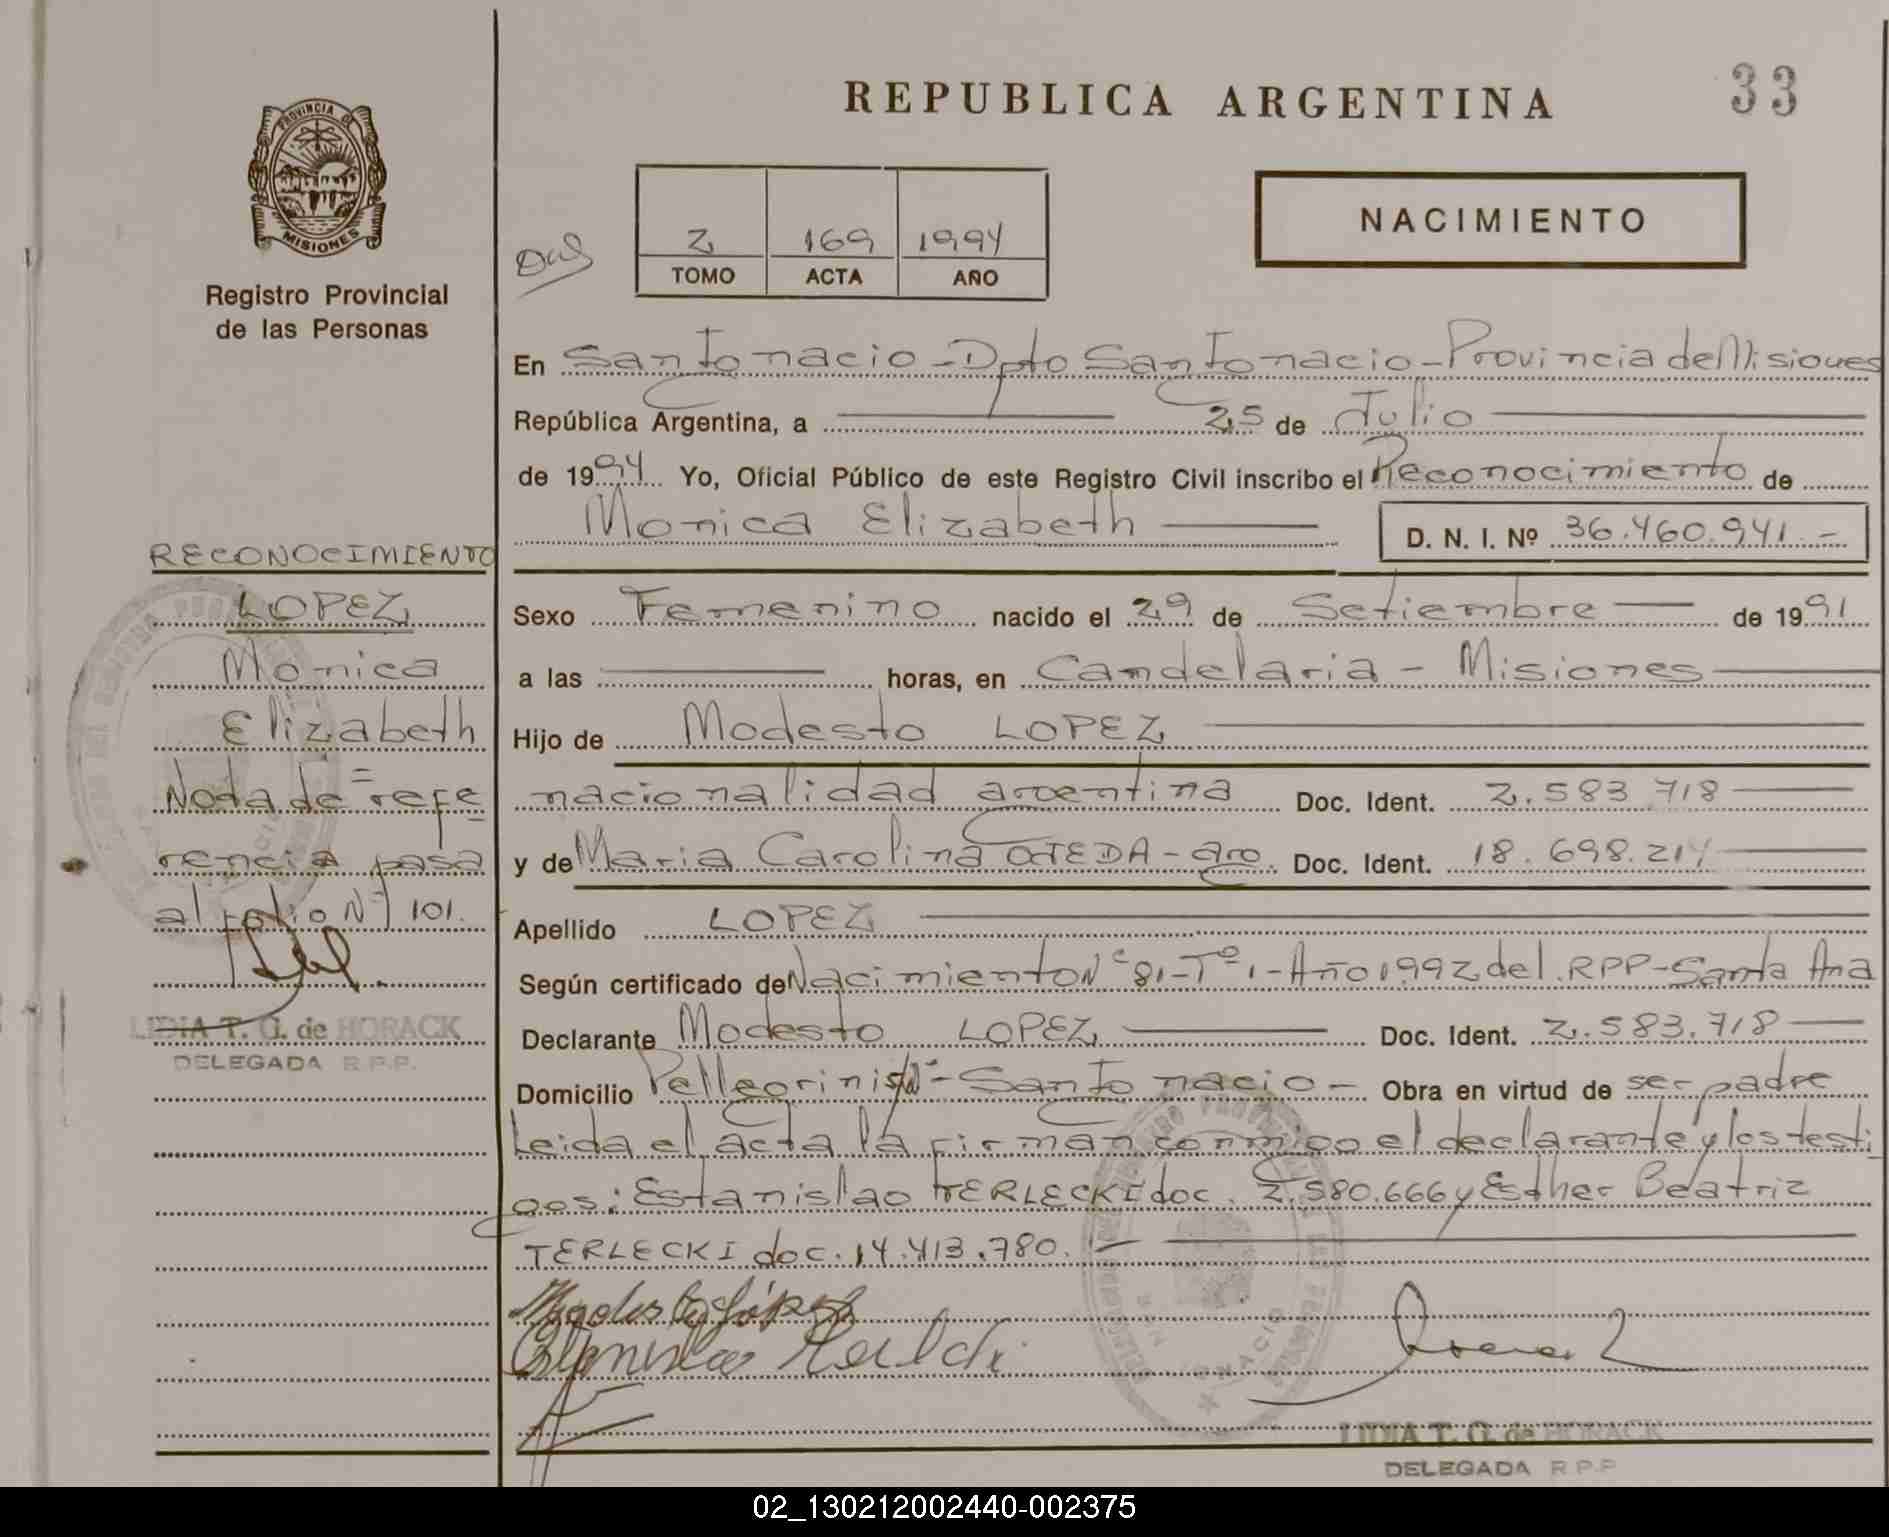 REPUBLICA ARGENTINA
33
PROVINCIA DE
MISIONES
Registro Provincial
de las Personas
2 169 1994
TOMO ACTA AÑO
NACIMIENTO
En San Ignacio - Dpto San Ignacio - Provincia de Misiones
República Argentina, a 25 de Julio
de 1994 Yo, Oficial Público de este Registro Civil inscribo el Reconocimiento de
Monica Elizabeth D. N. I. Nº 36.460.941.-
Sexo Femenino nacido el 29 de Setiembre de 1991
a las horas, en Candelaria - Misiones
Hijo de Modesto LOPEZ
nacionalidad argentina Doc. Ident. 2.583 718
y de Maria Carolina OJEDA - arg. Doc. Ident. 18.698.214
Apellido LOPEZ
Según certificado de Nacimiento Nº 81-Tº 1-Año 1992 del RPP-Santa Ana
Declarante Modesto LOPEZ Doc. Ident. 2.583.718
Domicilio Pellegrini s/Nº - San Ignacio - Obra en virtud de ser padre
Leida el acta la firman conmigo el declarante y los testi
gos: Estanislao TERLECKI doc. 2.580.666 y Esther Beatriz
TERLECKI doc. 14.413.780.
LIDIA T. G. de HORACK
DELEGADA R.P.P.
RECONOCIMIENTO
LOPEZ
Monica
Elizabeth =
Nota de refe
rencia pasa
al folio Nº 101.
LIDIA T. G. de HORACK
DELEGADA R.P.P.
02_130212002440-002375